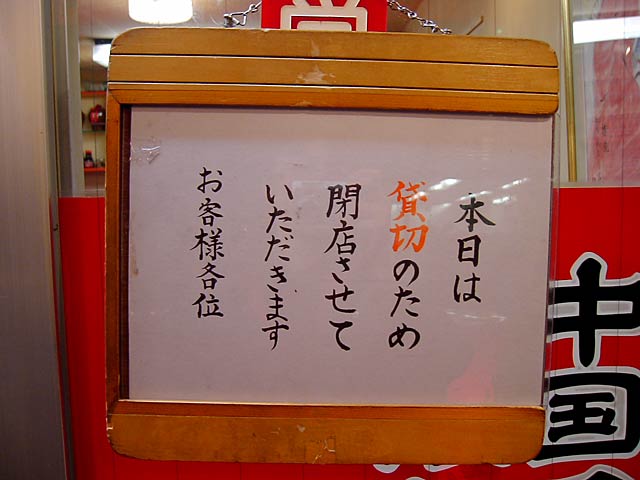 本日は
貸切のため
閉店させて
いただきます
お客様各位
中国